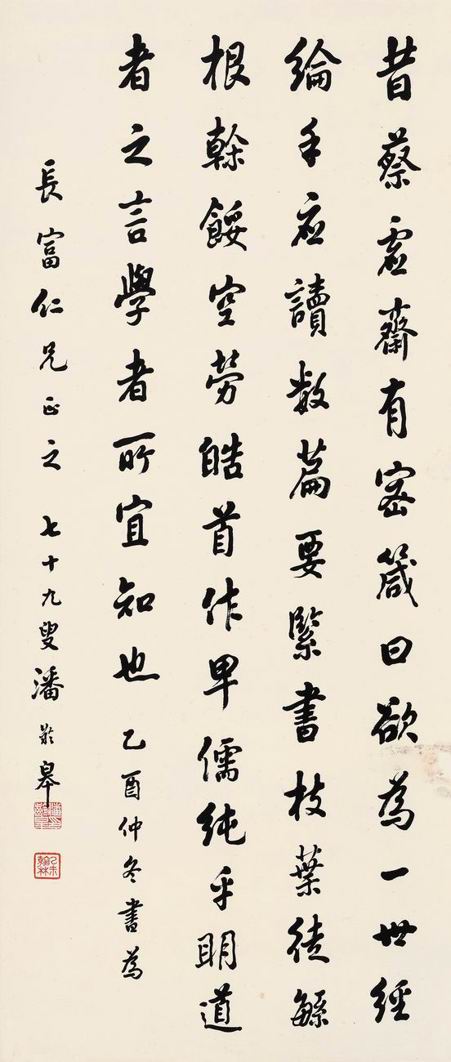 昔蔡虛齋有密箴曰欲為一世經
綸手應讀數篇要緊書枝葉徒緐
根榦餒空勞皓首作卑儒純乎明道
者之言學者所宜知也 乙酉仲冬書為
長富仁兄正之 七十九叟潘齡皋
乙未翰林